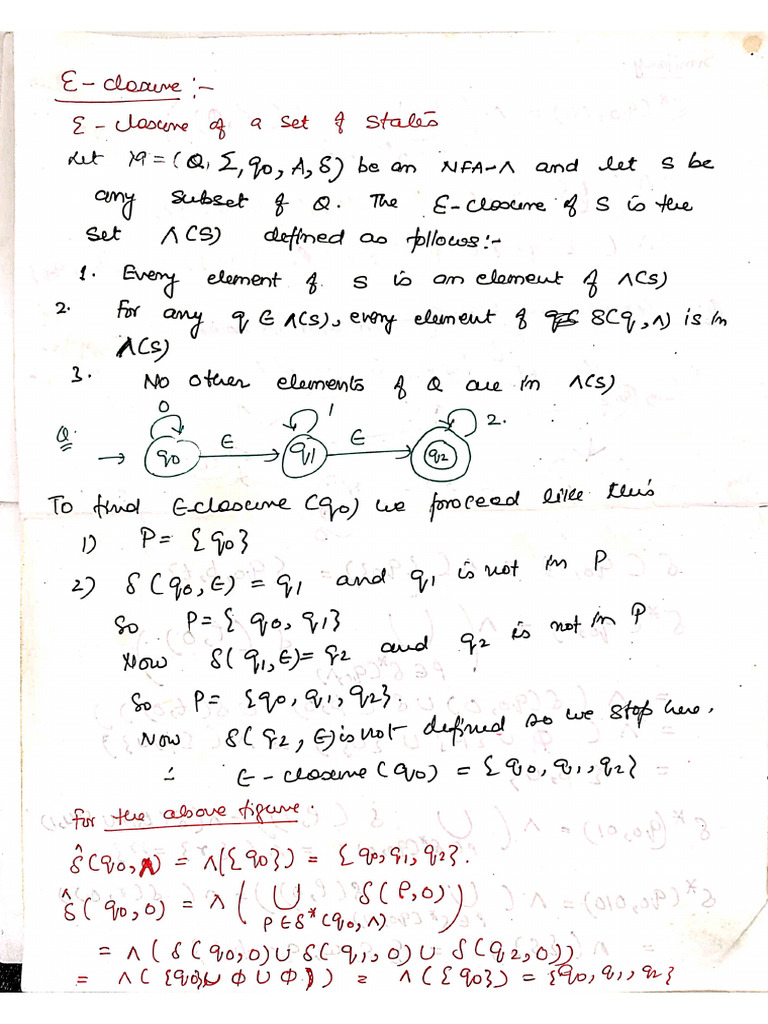 Ɛ-closure :-
Ɛ-closure of a set of states
Let M=(Q, Σ, q0, A, δ) be an NFA-Λ and let S be
any subset of Q. The Ɛ-closure of S is the
set Λ(S) defined as follows:-
1. Every element of S is an element of Λ(S)
2. For any q ∈ Λ(S), every element of δ(q, Λ) is in
Λ(S)
3. No other elements of Q are in Λ(S)
0 1 2.
Q. → q0 ∈ q1 ∈ q2
To find ∈-closure (q0) we proceed like this
1) P = {q0}
2) δ(q0, ∈) = q1 and q1 is not in P
So P = {q0, q1}
Now δ(q1, ∈) = q2 and q2 is not in P
So P = {q0, q1, q2}
Now δ(q2, ∈) is not defined so we stop here.
∴ ∈-closure(q0) = {q0, q1, q2}
For the above figure.
δ̂(q0, Λ) = Λ({q0}) = {q0, q1, q2}.
δ̂(q0, 0) = Λ( ∪ δ(P, 0) )
P∈δ*(q0, Λ)
= Λ(δ(q0, 0) ∪ δ(q1, 0) ∪ δ(q2, 0))
= Λ({q0} ∪ ϕ ∪ ϕ)) = Λ({q0}) = {q0, q1, q2}